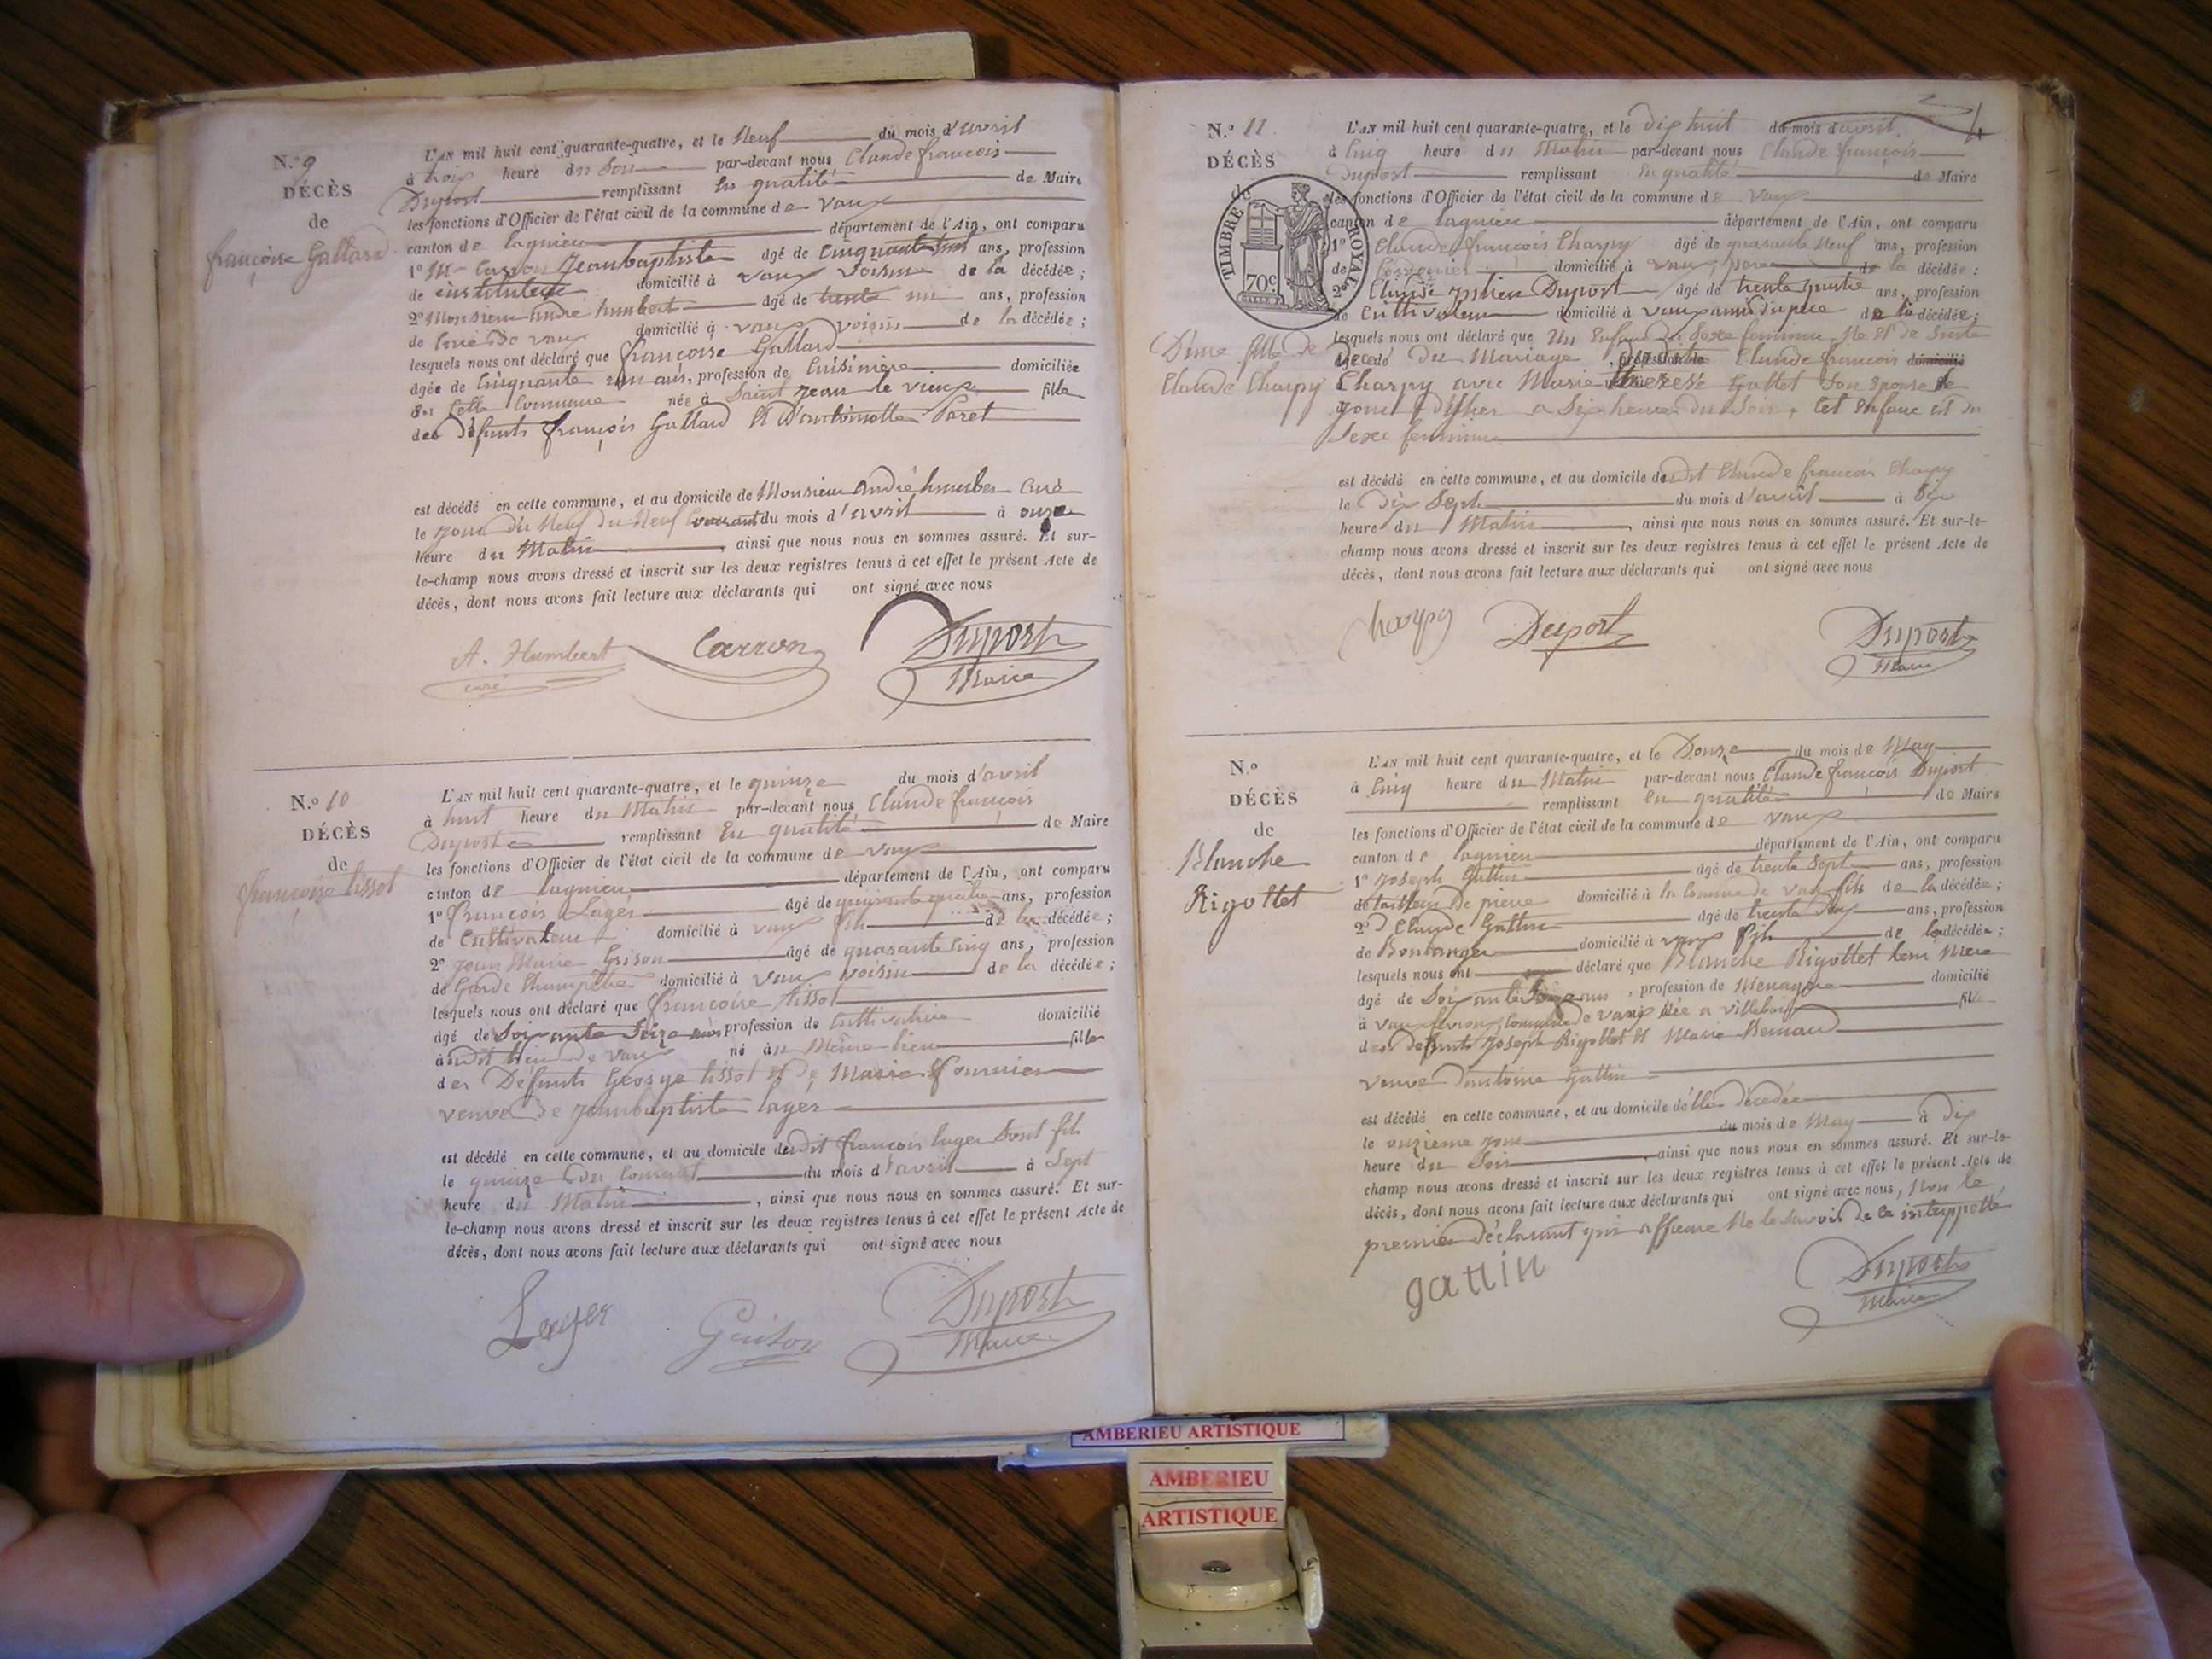 N.º 9
DÉCÈS
de
françoise Gallard
L'AN mil huit cent quarante-quatre, et le Neuf du mois d'avril
à trois heure du Soir par-devant nous Claude françois
Duport remplissant En qualité de Maire
les fonctions d'Officier de l'état civil de la commune de vaux
canton de lagnieu département de l'Ain, ont comparu
1º Mr Carron Jeanbaptiste âgé de Cinquante ans, profession
de instituteur domicilié à vaux voisin de la décédée;
2º Monsieur andré humbert âgé de trente ans, profession
de Curé de vaux domicilié à vaux voisin de la décédée;
lesquels nous ont déclaré que françoise Gallard
âgée de Cinquante ans, profession de Cuisinière domiciliée
En Cette Commune née à Saint Jean le vieux fille
des Défunts françois Gallard Et D'antoinette Paret
est décédé en cette commune, et au domicile de Monsieur andré humber Curé
le jour du Neuf du Neuf Courant du mois d'avril à onze
heure du Matin, ainsi que nous nous en sommes assuré. Et sur-
le-champ nous avons dressé et inscrit sur les deux registres tenus à cet effet le présent Acte de
décès, dont nous avons fait lecture aux déclarants qui ont signé avec nous
A. Humbert Carron Duport
curé Maire
N.º 10
DÉCÈS
de
françoise tissot
L'AN mil huit cent quarante-quatre, et le quinze du mois d'avril
à huit heure du Matin par-devant nous Claude françois
Duport remplissant En qualité de Maire
les fonctions d'Officier de l'état civil de la commune de vaux
canton de lagnieu département de l'Ain, ont comparu
1º françois Lager âgé de quarante quatre ans, profession
de Cultivateur domicilié à vaux fils de la décédée;
2º Jean Marie Grison âgé de quarante Cinq ans, profession
de Garde Champêtre domicilié à vaux voisin de la décédée;
lesquels nous ont déclaré que françoise tissot
âgé de Soixante Seize ans profession de Cultivatrice domicilié
audit lieu de vaux né au Même lieu fille
des Défunts George tissot et de Marie fournier
veuve de Jeanbaptiste lager
est décédé en cette commune, et au domicile dudit françois lager Sont fils
le quinze du Courant du mois d'avril à Sept
heure du Matin, ainsi que nous nous en sommes assuré. Et sur-
le-champ nous avons dressé et inscrit sur les deux registres tenus à cet effet le présent Acte de
décès, dont nous avons fait lecture aux déclarants qui ont signé avec nous
Lager Grison Duport
Maire
N.º 11
DÉCÈS
TIMBRE ROYAL
70c
D'une fille de
Claude Charpy
L'AN mil huit cent quarante-quatre, et le dix huit du mois d'avril
à Cinq heure du Matin par-devant nous Claude françois
Duport remplissant En qualité de Maire
les fonctions d'Officier de l'état civil de la commune de vaux
canton de lagnieu département de l'Ain, ont comparu
1º Claude françois Charpy âgé de quarante Neuf ans, profession
de Cordonier domicilié à vaux, pere de la décédée;
2º Claude Duport âgé de trente quatre ans, profession
de Cultivateur domicilié à vaux amis du pere de la décédée;
lesquels nous ont déclaré que Un Enfant du Sexe feminin Né Et de Suite
Decedé du Mariage Claude françois
Charpy avec Marie therese Gallet Son Epouse le
jour d'hier a Six heures du Soir, Cet Enfant Est du
Sexe feminin
est décédé en cette commune, et au domicile dudit Claude françois Charpy
le Dix Sept du mois d'avril à Six
heure du Matin, ainsi que nous nous en sommes assuré. Et sur-le-
champ nous avons dressé et inscrit sur les deux registres tenus à cet effet le présent Acte de
décès, dont nous avons fait lecture aux déclarants qui ont signé avec nous
Charpy Duport Duport
Maire
N.º
DÉCÈS
de
Blanche
Rigottet
L'AN mil huit cent quarante-quatre, et le Douze du mois de May
à Cinq heure du Matin par-devant nous Claude françois Duport
remplissant En qualité de Maire
les fonctions d'Officier de l'état civil de la commune de vaux
canton de lagnieu département de l'Ain, ont comparu
1º Joseph Gattin âgé de trente Sept ans, profession
de tailleur de pierre domicilié à la Commune de vaux fils de la décédée;
2º Claude Gattin âgé de trente ans, profession
de Boulanger domicilié à vaux fils de la décédée;
lesquels nous ont déclaré que Blanche Rigottet leur Mere
âgé de Soixante ans, profession de Menagère domicilié
à vaux fevroux, Commune de vaux Née a villebois fille
des defunts Joseph Rigottet Et Marie Bernard
veuve D'antoine Gattin
est décédé en cette commune, et au domicile de lla décédée
le onzieme jour du mois de May à dix
heure du Soir, ainsi que nous nous en sommes assuré. Et sur-le-
champ nous avons dressé et inscrit sur les deux registres tenus à cet effet le présent Acte de
décès, dont nous avons fait lecture aux déclarants qui ont signé avec nous, Non le
premier déclarant qui affirme Ne le Savoir de ce interppellé
gattin Duport
Maire
AMBERIEU ARTISTIQUE
AMBERIEU
ARTISTIQUE